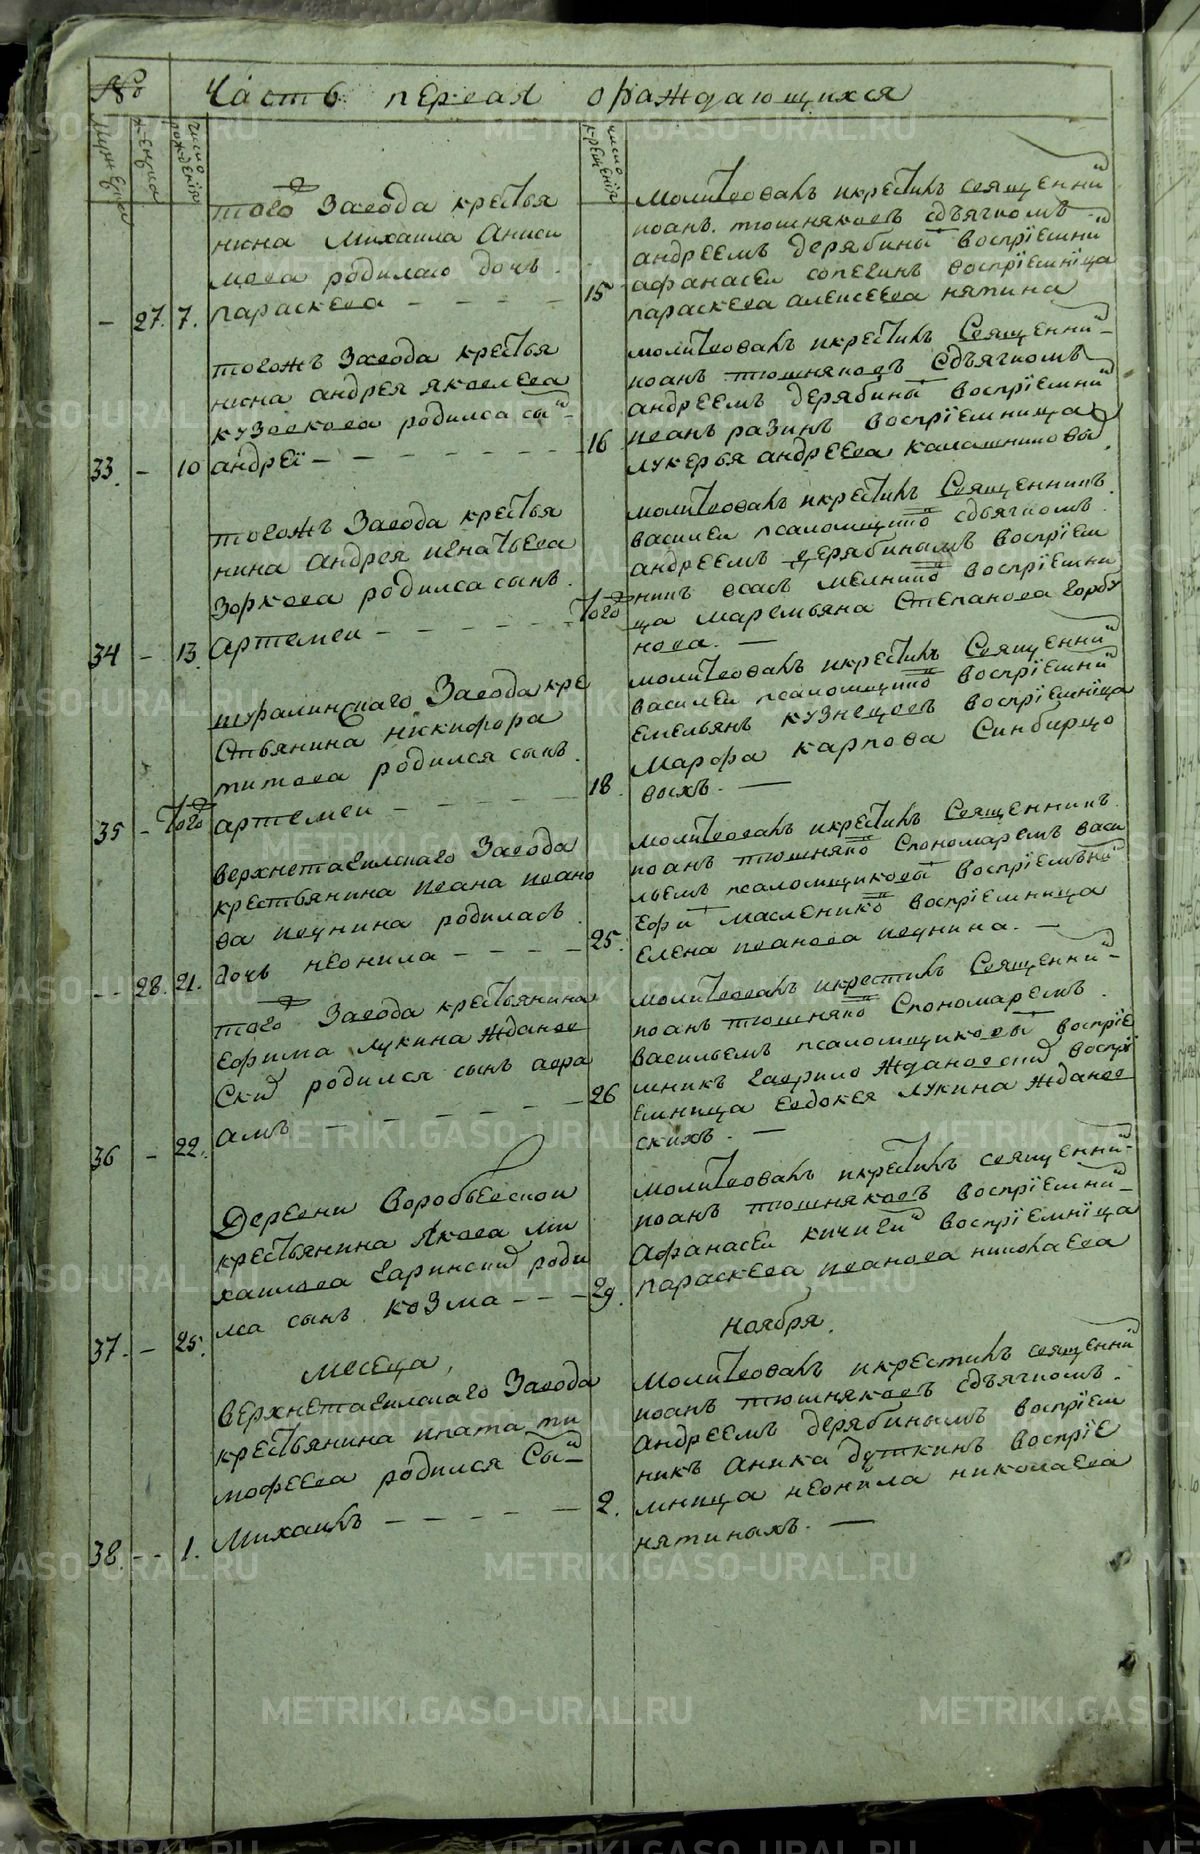 № Часть первая о раждающихся
мужеска
женска
число рожденія
число крещенія
того Завода крестья
нина Михаила Аниси
мова родилась дочь
27. 7. параскева
молитвовалъ икрестилъ священни
иоанъ тюшняковъ сдъячкомъ
андреемъ дерябины воспріемни
15 афанасеи сопегинъ воспріемніца
параскева алексеева няпина
тогожъ Завода крестья
нина андрея яковлева
кузовкова родился сы
33. 10 андреї
молитвовалъ икрестилъ Священни
иоанъ тюшняковъ Сдъячкомъ
андреемъ дерябины воспріемни
16 иванъ разинъ воспріемница
лукерья андреева калашниковы
тогожъ Завода крестья
нина андрея игнатьева
Зоркова родился сынъ.
34 13. Артемеи
молитвовалъ икрестилъ Священникъ
василеи псаломщико сдъячкомъ
андреемъ дерябинымъ воспріем
никъ осипъ мелнико воспріемни
Того ца маремьяна Степанова горбу
нова.
шуралинскаго Завода кре
Стьянина никифора
титова родился сынъ.
35 Того артемеи
молитвовалъ икрестилъ Священни
василеи псаломщико воспріемни
Емельянъ кузнецовъ воспріемніца
Марфа карпова Синбирцо
18 выхъ.
верхнетагилскаго Завода
крестьянина ивана ивано
ва пеунина родилась
28. 21. дочь неонила
молитвовалъ икрестилъ Священникъ
иоанъ тюшняко Спономаремъ васи
льемъ псаломщиковы воспріемъни
Ефи масленико воспріемница
25. Елена иванова пеунина.
того Завода крестьянина
Ефима лукина жданов
Ски родился сынъ авра
36 22. амъ
молитвовалъ икрестилъ Священни
иоанъ тюшняко Спономаремъ
васильемъ псаломщиковы воспріе
26 мникъ гаврило ждановски воспрі
емница Евдокея лукина жданов
скихъ.
Деревни воробьевскои
крестьянина якова ми
хаилова гарински роди
37. 25. лса сынъ козма
молитвовалъ икрестилъ священни
иоанъ тюшняковъ воспріемни
Афанасеи кичиги воспріемніца
29. параскева иванова николаева
месеца, ноября.
верхнетагилскаго Завода
крестьянина ипата ти
мофеева родился Сы
38. 1. Михаилъ
молитвовалъ икрестилъ священни
иоанъ тюшняковъ сдъячкомъ.
Андреемъ дерябинымъ воспріем
никъ Аника дуткинъ воспріе
2. мница неонила николаева
няпинахъ.